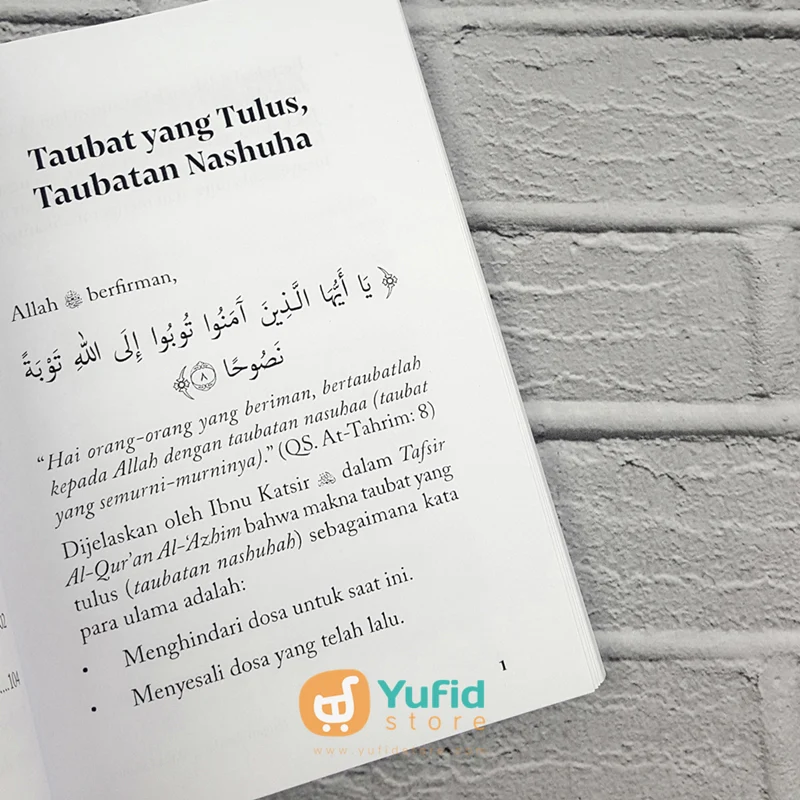 Taubat yang Tulus,
Taubatan Nashuha
Allah ﷻ berfirman,
﴿ يَا أَيُّهَا الَّذِينَ آمَنُوا تُوبُوا إِلَى اللهِ تَوْبَةً
نَصُوحًا ٨ ﴾
“Hai orang-orang yang beriman, bertaubatlah
kepada Allah dengan taubatan nasuhaa (taubat
yang semurni-murninya).” (QS. At-Tahrim: 8)
Dijelaskan oleh Ibnu Katsir dalam Tafsir
Al-Qur’an Al-‘Azhim bahwa makna taubat yang
tulus (taubatan nashuhah) sebagaimana kata
para ulama adalah:
• Menghindari dosa untuk saat ini.
• Menyesali dosa yang telah lalu.
1
....104
Yufid
store